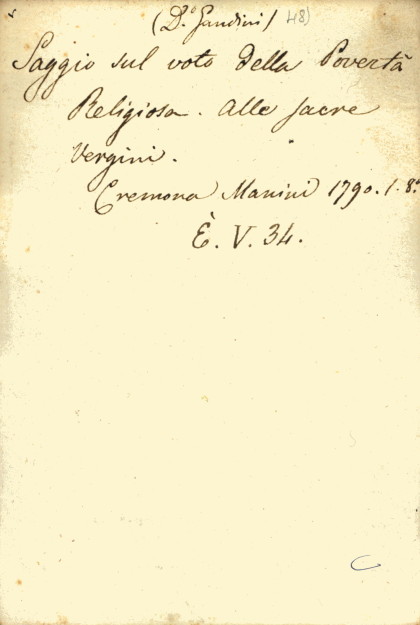 (D.º Gandini) 48)
Saggio sul voto della Povertà
Religiosa. Alle sacre
Vergini.
Cremona Manini 1790. 1. 8º
È. V. 34.